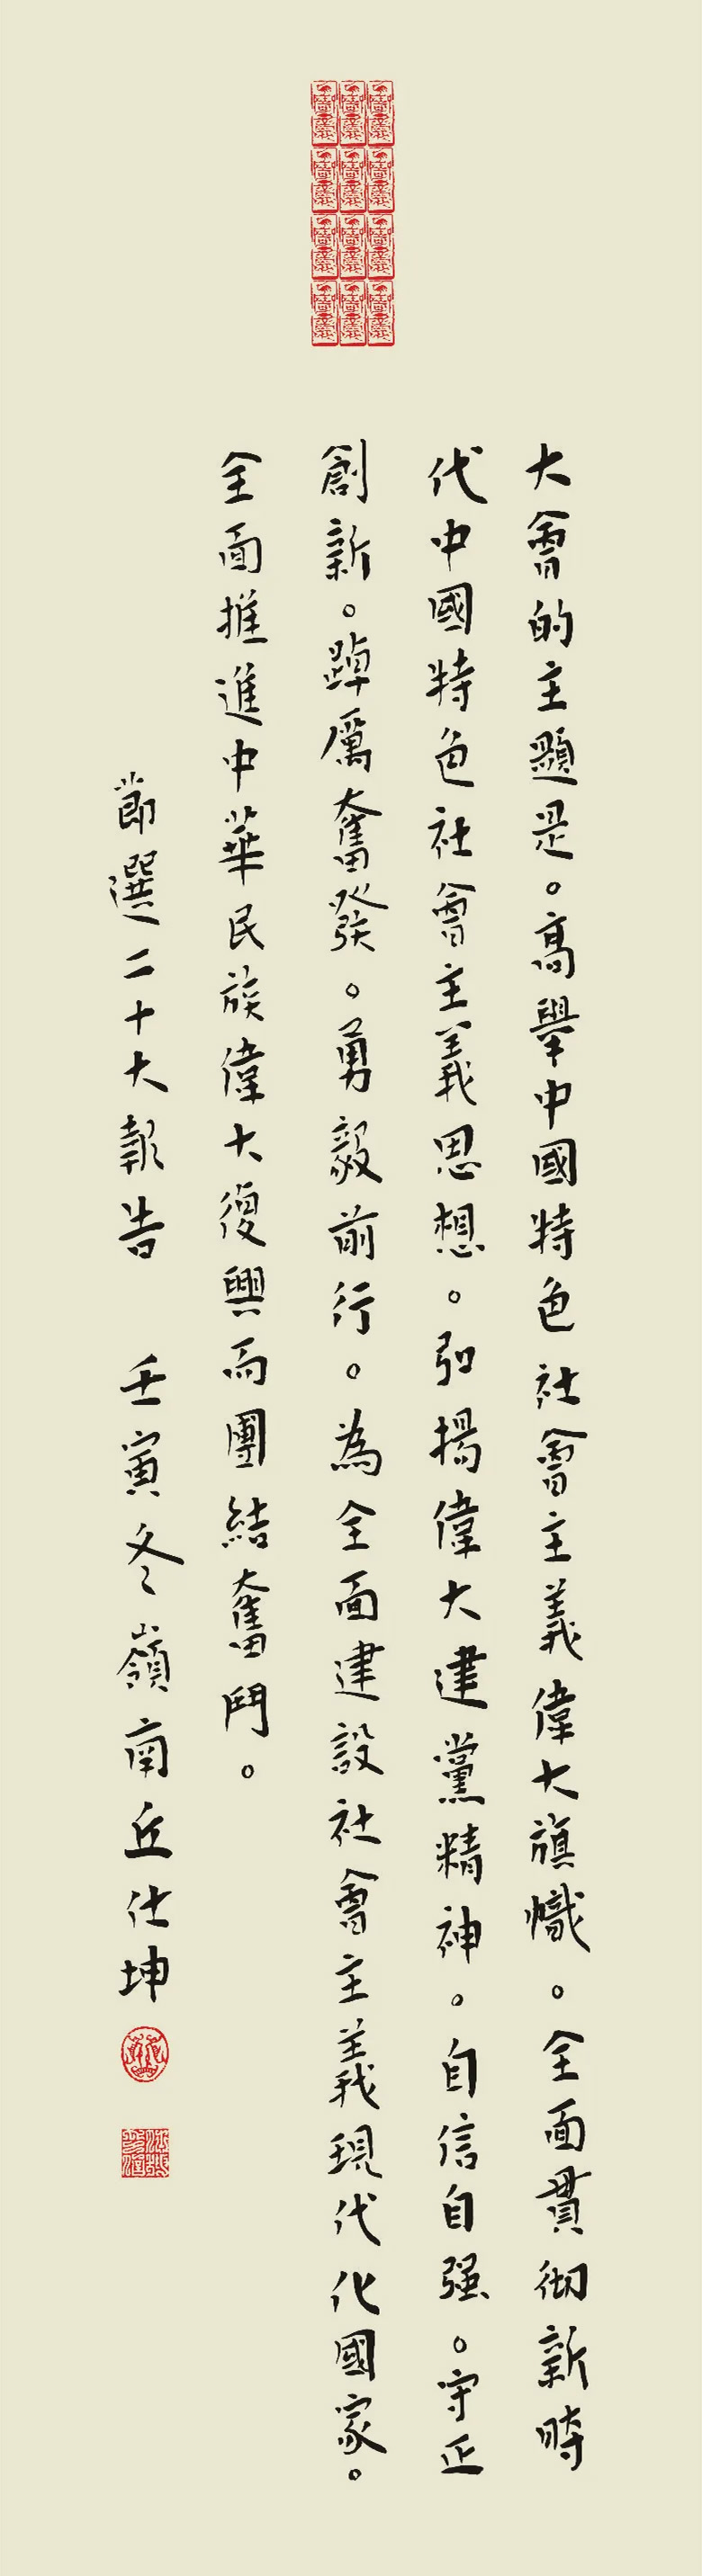 大會的主題是。高舉中國特色社會主義偉大旗幟。全面貫彻新時
代中國特色社會主義思想。弘揚偉大建黨精神。自信自强。守正
創新。踔厲奮發。勇毅前行。為全面建設社會主義現代化國家。
全面推進中華民族偉大復興而團結奮鬥。
節選二十大報告 壬寅冬嶺南丘仕坤